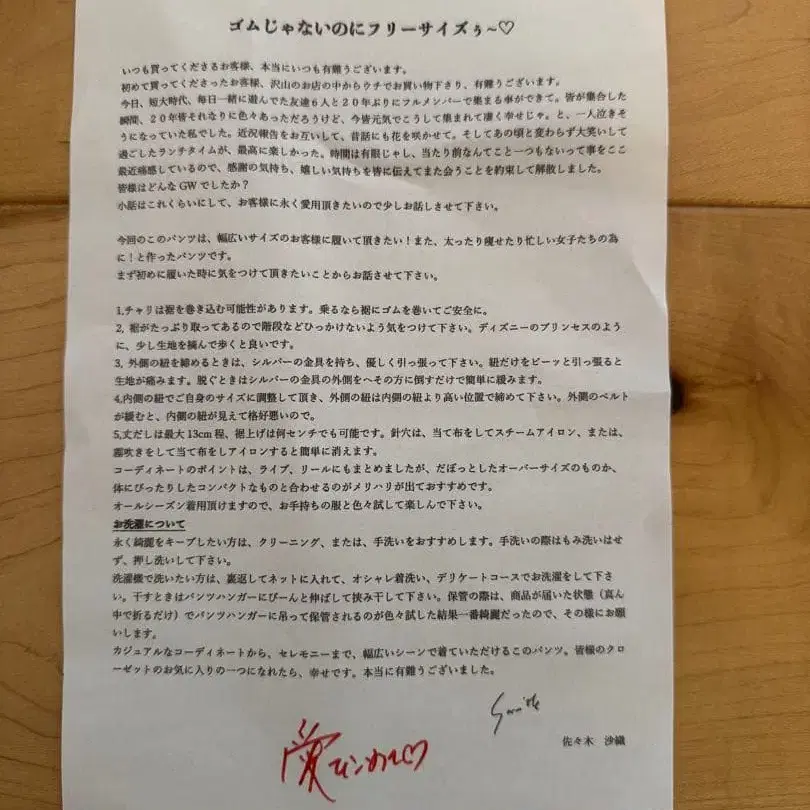 ゴムじゃないのにフリーサイズぅ~♡
いつも買ってくださるお客様、本当にいつも有難うございます。
初めて買ってくださったお客様、沢山のお店の中からウチでお買い物下さり、有難うございます。
今日、短大時代、毎日一緒に遊んでた友達6人と20年ぶりにフルメンバーで集まる事ができて。皆が集合した
瞬間、20年皆それなりに色々あっただろうけど、今皆元気でこうして集まれて凄く幸せじゃ。と、一人泣きそ
うになっていた私でした。近況報告をお互いして、昔話にも花を咲かせて。そしてあの頃と変わらず大笑いして
過ごしたランチタイムが、最高に楽しかった。時間は有限じゃし、当たり前なんてこと一つもないって事をここ
最近痛感しているので、感謝の気持ち、嬉しい気持ちを皆に伝えてまた会うことを約束して解散しました。
皆様はどんなGWでしたか?
小話はこれくらいにして、お客様に永く愛用頂きたいので少しお話しさせて下さい。
今回のこのパンツは、幅広いサイズのお客様に履いて頂きたい!また、太ったり痩せたり忙しい女子たちの為
に!と作ったパンツです。
まず初めに履いた時に気をつけて頂きたいことからお話させて下さい。
1.チャリは裾を巻き込む可能性があります。乗るなら裾にゴムを巻いてご安全に。
2, 裾がたっぷり取ってあるので階段などひっかけないよう気をつけて下さい。ディズニーのプリンセスのよう
に、少し生地を摘んで歩くと良いです。
3, 外側の紐を締めるときは、シルバーの金具を持ち、優しく引っ張って下さい。紐だけをピーッと引っ張ると
生地が痛みます。脱ぐときはシルバーの金具の外側をヘその方に倒すだけで簡単に緩みます。
4,内側の紐でご自身のサイズに調整して頂き、外側の紐は内側の紐より高い位置で締めて下さい。外側のベルト
が緩むと、内側の紐が見えて格好悪いので。
5,丈だしは最大13cm程、裾上げは何センチでも可能です。針穴は、当て布をしてスチームアイロン、または、
霧吹きをして当て布をしアイロンすると簡単に消えます。
コーディネートのポイントは、ライブ、リールにもまとめましたが、だぼっとしたオーバーサイズのものか、
体にぴったりしたコンパクトなものと合わせるのがメリハリが出ておすすめです。
オールシーズン着用頂けますので、お手持ちの服と色々試して楽しんで下さい。
お洗濯について
永く綺麗をキープしたい方は、クリーニング、または、手洗いをおすすめします。手洗いの際はもみ洗いはせ
ず、押し洗いして下さい。
洗濯機で洗いたい方は、裏返してネットに入れて、オシャレ着洗い、デリケートコースでお洗濯をして下さ
い。干すときはパンツハンガーにびーんと伸ばして挟み干して下さい。保管の際は、商品が届いた状態(真ん
中で折るだけ)でパンツハンガーに吊って保管されるのが色々試した結果一番綺麗だったので、その様にお願
いします。
カジュアルなコーディネートから、セレモニーまで、幅広いシーンで着ていただけるこのパンツ。皆様のクロ
ーゼットのお気に入りの一つになれたら、幸せです。本当に有難うございました。
佐々木 沙織
愛をこめて♡